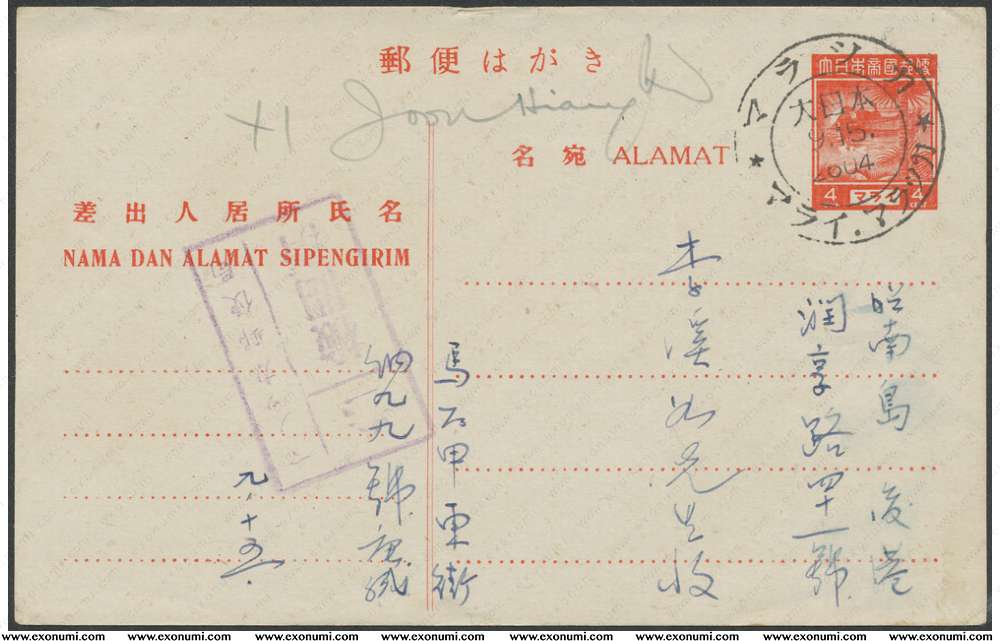 郵便はがき
41 Joon Hiang
大日本帝國郵便
4 マライ 4
マラッカ
大日本
9.15.
2604
マライ・マラッカ
名宛 ALAMAT
差出人居所氏名
NAMA DAN ALAMAT SIPENGIRIM
昭南島 後港
潤享路四十一號
李溪 先生收
馬六甲 街
九九號
九·十五
郵便局
www.exonumi.com www.exonumi.com www.exonumi.com www.exonumi.com www.exonumi.com www.exonumi.com www.exonumi.com